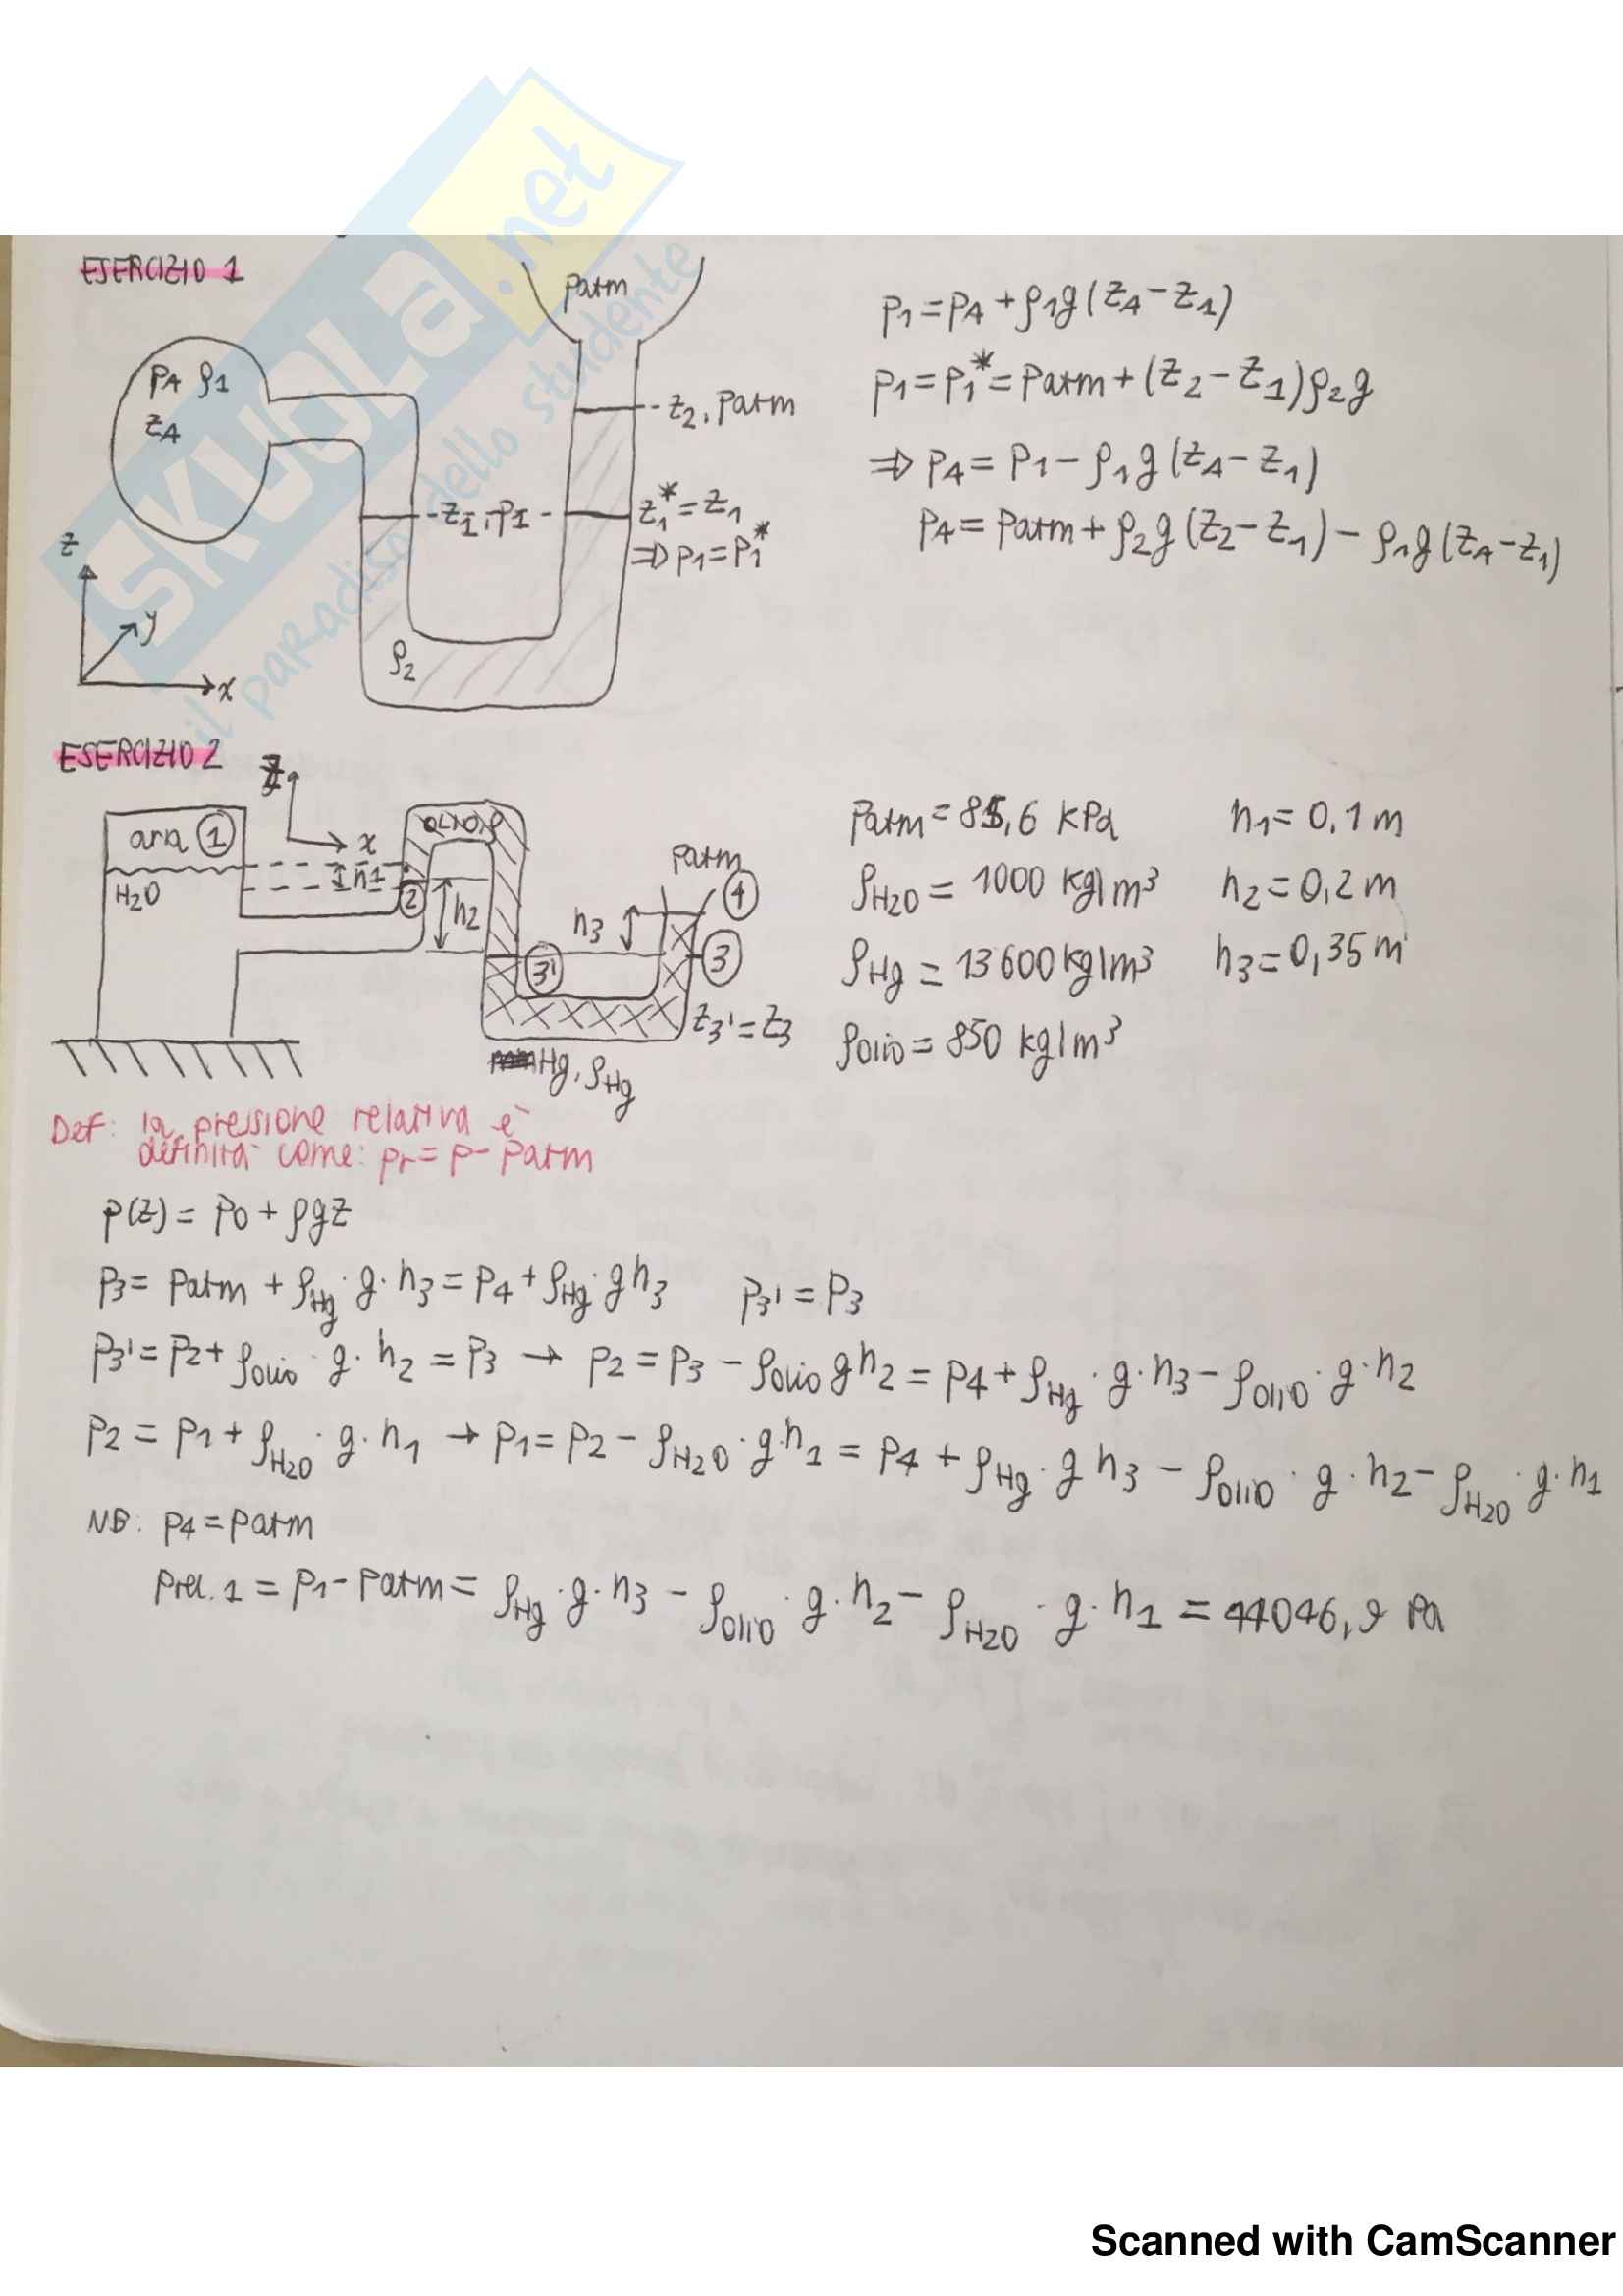 SKUOLA.net
il paradiso dello studente
ESERCIZIO 1
patm
pA ρ1
zA
z2, patm
z1, p1
z1* = z1
⇒ p1 = p1*
ρ2
z
y
x
p1 = pA + ρ1g(zA - z1)
p1 = p1* = patm + (z2 - z1)ρ2g
⇒ pA = p1 - ρ1g(zA - z1)
pA = patm + ρ2g(z2 - z1) - ρ1g(zA - z1)
ESERCIZIO 2
z
x
aria 1
H2O
h1
2
OLIO
h2
h3
patm
4
3
3'
z3' = z3
Hg, ρHg
patm = 85,6 kPa
h1 = 0,1 m
ρH2O = 1000 kg/m³
h2 = 0,2 m
ρHg = 13600 kg/m³
h3 = 0,35 m
ρolio = 850 kg/m³
Def: la pressione relativa è
definita come: pr = p - patm
p(z) = p0 + ρgz
p3 = patm + ρHg · g · h3 = p4 + ρHg · gh3 p3' = p3
p3' = p2 + ρolio · g · h2 = p3 → p2 = p3 - ρolio gh2 = p4 + ρHg · g · h3 - ρolio · g · h2
p2 = p1 + ρH2O · g · h1 → p1 = p2 - ρH2O · g · h1 = p4 + ρHg · g h3 - ρolio · g · h2 - ρH2O · g · h1
NB: p4 = patm
prel. 1 = p1 - patm = ρHg · g · h3 - ρolio · g · h2 - ρH2O · g · h1 = 44046,9 Pa
Scanned with CamScanner